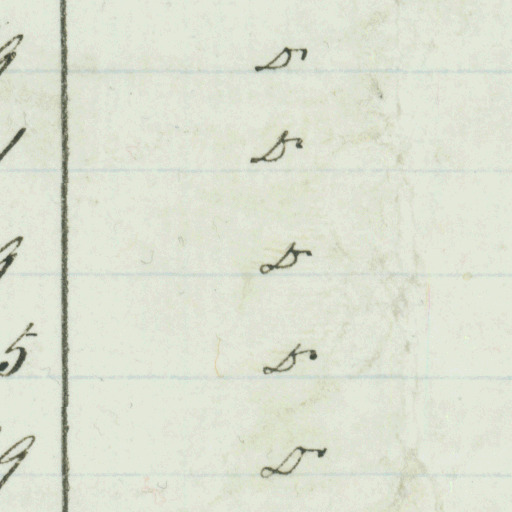 9 Do
1 Do
9 Do
5 Do
9 Do